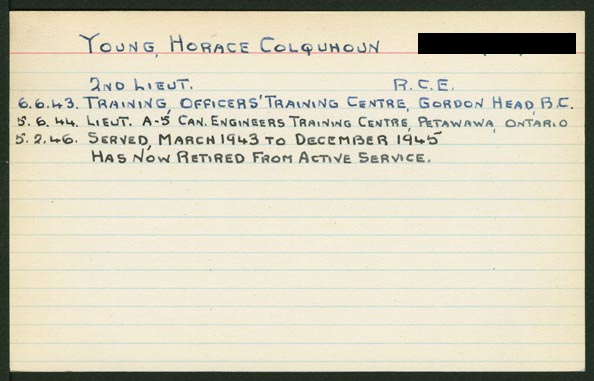 YOUNG, HORACE COLQUHOUN
2ND LIEUT. R.C.E.
6.6.43. TRAINING, OFFICERS' TRAINING CENTRE, GORDON HEAD, B.C.
5.6.44. LIEUT. A-5 CAN. ENGINEERS TRAINING CENTRE, PETAWAWA, ONTARIO
5.2.46. SERVED, MARCH 1943 TO DECEMBER 1945
HAS NOW RETIRED FROM ACTIVE SERVICE.